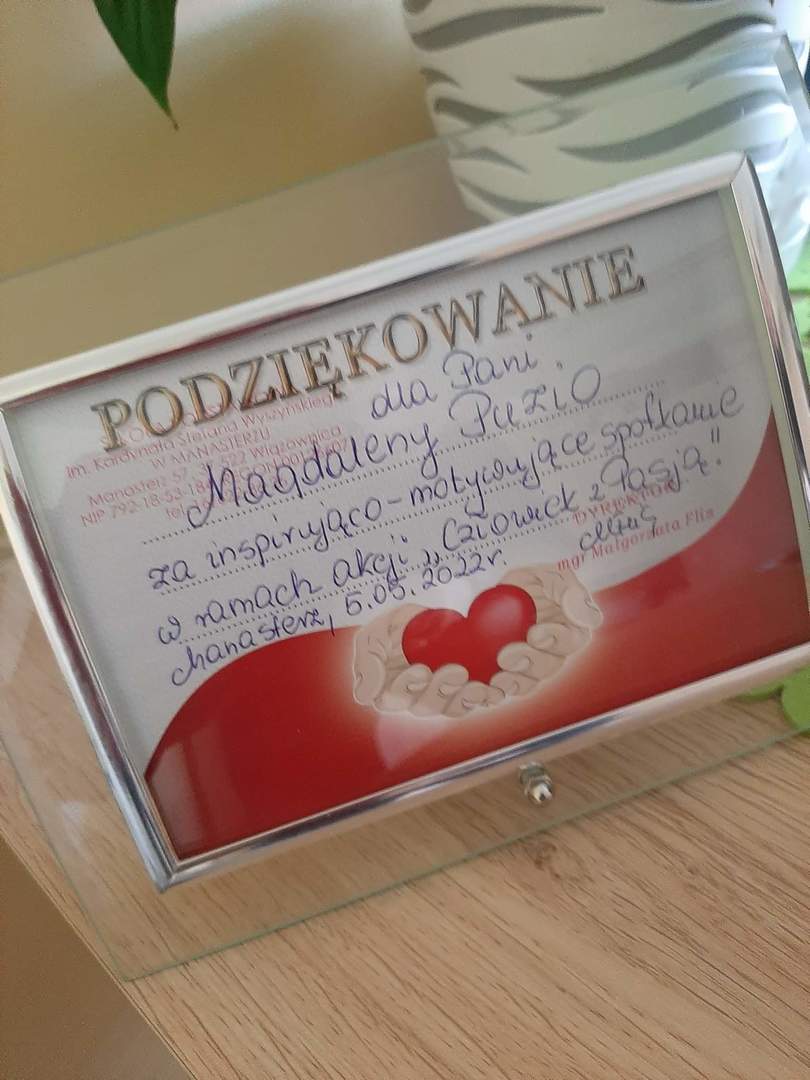 PODZIĘKOWANIE
im. Kardynała Stefana Wyszyńskiego
W MANASTERZU
Manasterz 57, Wiązownica
NIP 792-18-53-
tel.
dla Pani
Magdaleny PUZIO
za inspirująco-motywujące spotkanie
w ramach akcji „Człowiek z Pasją."
Manasterz, 5.05.2022r.
DYREKTOR
mgr Małgorzata Flis